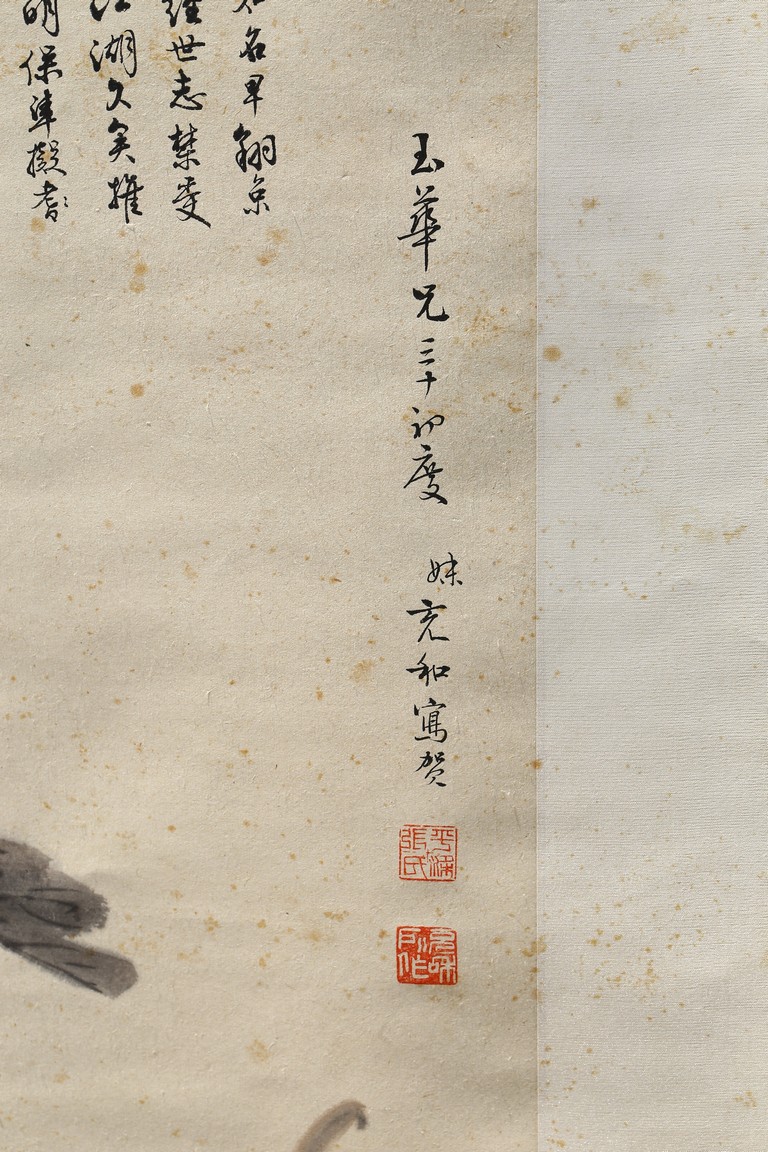 玉華兄三十初度
妹充和寫賀
平
張氏
充和
所作
名早翔京
經世志
江湖久矣推
明保擬耆